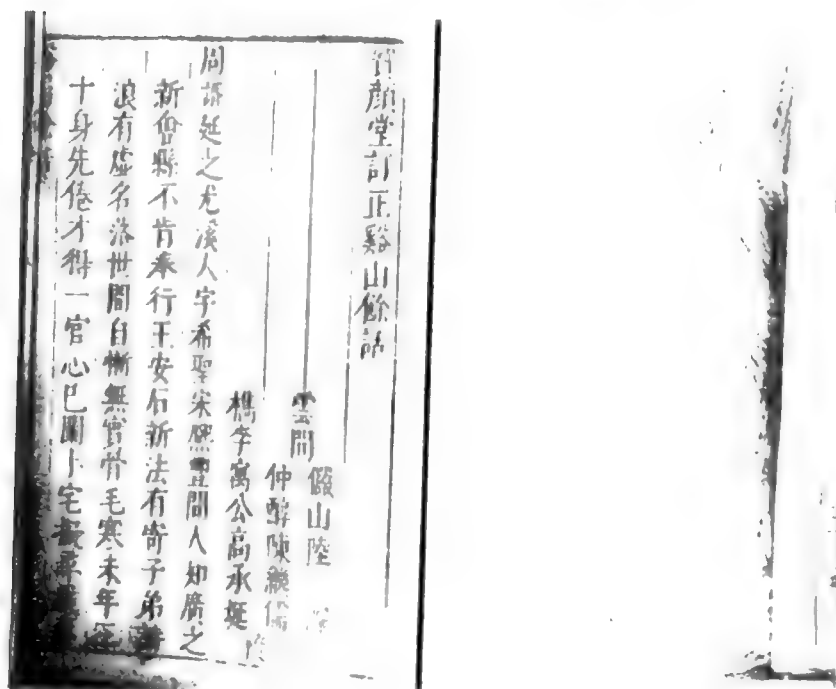 顏堂訂正谿山餘話
雲間
儼山陸
仲醇陳繼儒
檇李寓公高承埏
周諝延之尤溪人字希聖宋熙豐間人知廣之
新會縣不肯奉行王安石新法有寄子弟詩
浪有虛名落世間自慚無實骨毛寒未年
十身先倦才得一官心已闌卜宅擬尋